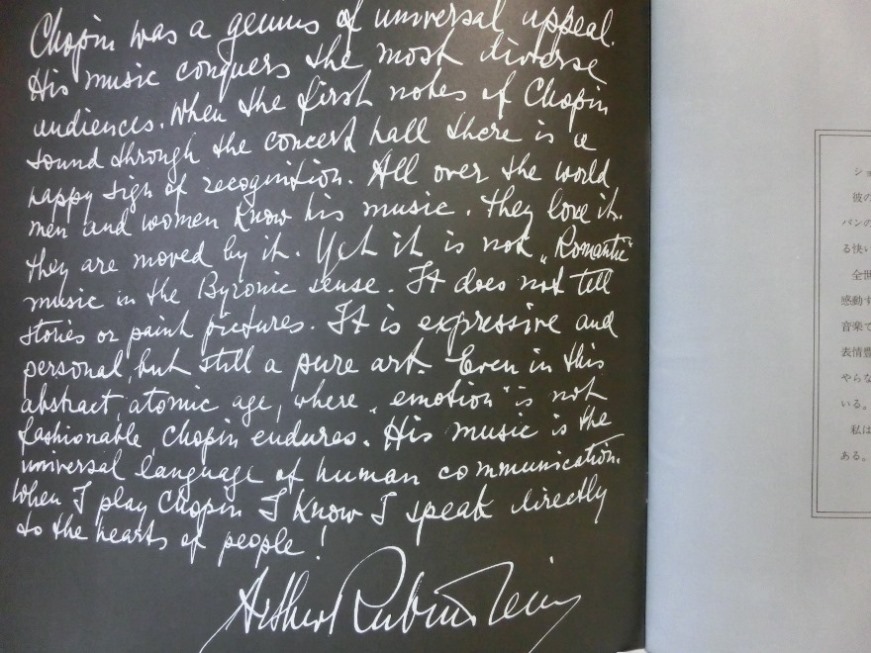 Chopin was a genius of universal appeal.
His music conquers the most diverse
audiences. When the first notes of Chopin
sound through the concert hall there is a
happy sign of recognition. All over the world
men and women know his music. They love it.
They are moved by it. Yet it is not „Romantic"
music in the Byronic sense. It does not tell
stories or paint pictures. It is expressive and
personal, but still a pure art. Even in this
abstract, atomic age, where „emotion" is not
fashionable, Chopin endures. His music is the
universal language of human communication.
When I play Chopin I know I speak directly
to the hearts of people!
Arthur Rubinstein
ショ
彼の
パンの
る快い
全世
感動す
音楽で
表情豊
やらな
いる。
私は
ある。